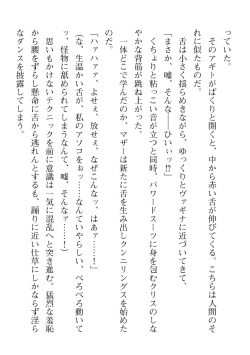 っていた。
　そのアギトがぱくりと開くと、中から赤い舌が伸びてくる。こちらは人間のそ
れに似たものだ。
　舌は小さく揺らめきながら、ゆっくりとヴァギナに近づいてきて、
（まさか、嘘、そんな――ひいぃッ!!）
　くちゅりと粘っこい音が立つと同時、パワードスーツに身を包むクリスのしな
やかな背筋が跳ね上がった。
　一体どこで学んだのか、マザーは新たに舌を生み出しクンニリングスを始めた
のだ。
「ハァハァァ、よせぇ、放せぇ、なぜこんなッ、はあァ……！」
（な、生温かい舌が、私のアソコをぉッ……なんていやらしい、ぺろぺろ動いて
ッ、怪物に舐められてしまうなんて、嘘、そんなァ……！）
　思いもかけないテクニックを前に意識は一気に混乱へと突き進む。猛烈な羞恥
から腰をずらし懸命に舌から逃れんとするも、踊りに近い仕草にしかならず淫ら
なダンスを披露してしまう。